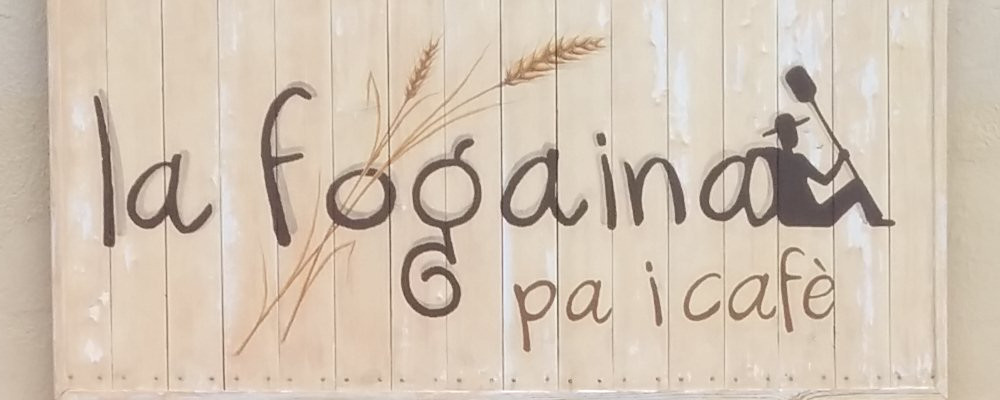 la fogaina
pa i cafè